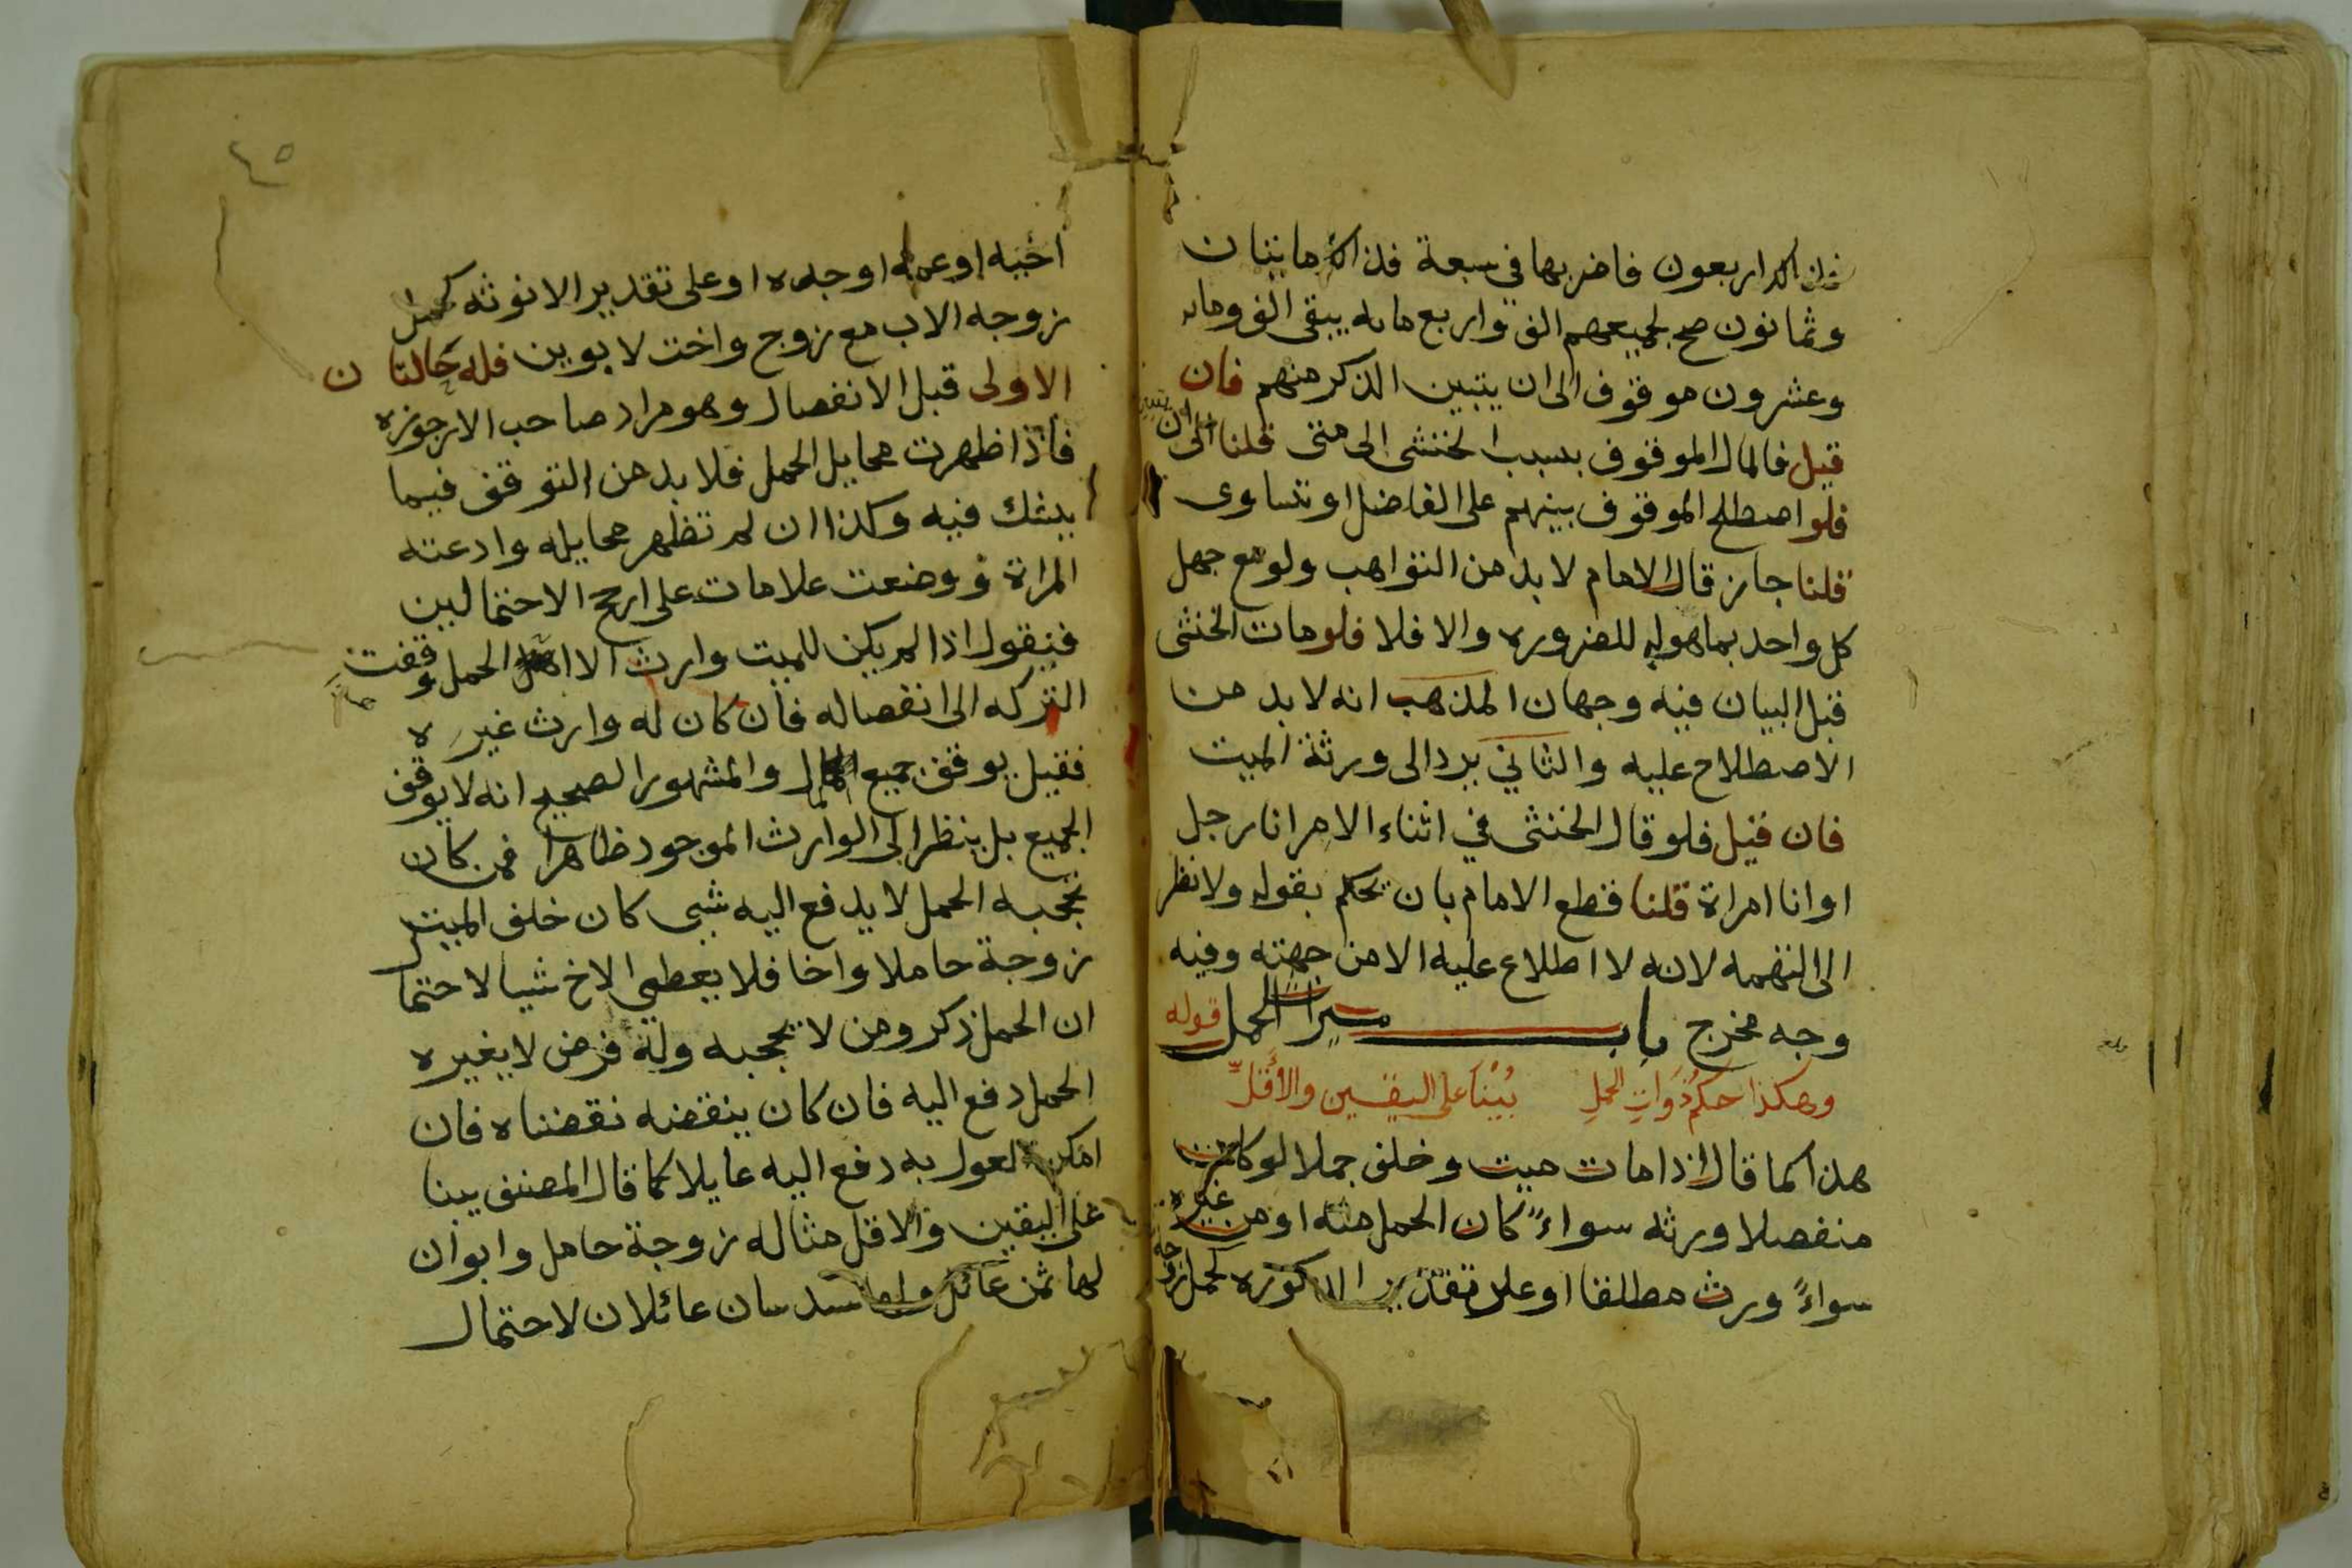 فذلك اربعون فاضربها في سبعة فذلك مايتان
وثمانون صح لجميعهم الف واربع مايه يبقى الف ومايه
وعشرون موقوف الى ان يتبين الذكر منهم فان
قيل فالمال الموقوف بسبب الخنثى الى متى قلنا الى ان يتبين
فلو اصطلح الموقوف بينهم على الفاضل او تساوى
قلنا جاز قال الامام لا بد من التواهب ولو مع جهل
كل واحد بما هو له للضروره والا فلا فلو مات الخنثى
قبل البيان فيه وجهان المذهب انه لا بد من
الاصطلاح عليه والثاني يرد الى ورثة الميت
فان قيل فلو قال الخنثى في اثناء الامر انا رجل
او انا امراة قلنا قطع الامام بان يحكم بقوله ولا نظر
الى التهمه لانه لا اطلاع عليه الا من جهته وفيه
وجه مخرج باب ميراث الحمل قوله
وهكذا حكم ذوات الحمل بُيْنَا على اليقين والأقلِّ
هذا كما قال اذا مات ميت وخلف حملا لو كان
منفصلا ورثه سواءً كان الحمل منه او من غيره
سواءً ورث مطلقا او على تقدير الذكوره كحمل زوجة
٤٥
اخيه او عمه او جده او على تقدير الانوثه كحمل
زوجه الاب مع زوج واخت لابوين فله حالتان
الاولى قبل الانفصال وهو مراد صاحب الارجوزه
فاذا ظهرت مخايل الحمل فلا بد من التوقف فيما
يشك فيه وكذا ان لم تظهر مخايله وادعته
المراة ووضعت علامات على ارجح الاحتمالين
فنقول اذا لم يكن للميت وارث الا الحمل وقفت
التركه الى انفصاله فان كان له وارث غيره
فقيل يوقف جميع المال والمشهور الصحيح انه لا يوقف
الجميع بل ينظر الى الوارث الموجود ظاهرا فمن كان
يحجبه الحمل لا يدفع اليه شي كان خلف الميت
زوجة حاملا واخا فلا يعطى الاخ شيا لاحتمال
ان الحمل ذكر ومن لا يحجبه وله فرض لا يغيره
الحمل دفع اليه فان كان ينقضه نقضناه فان
امكن العول به دفع اليه عايلا كما قال المصنف بينا
على اليقين والاقل مثاله زوجة حامل وابوان
لها ثمن عائل ولهما سدسان عائلان لاحتمال